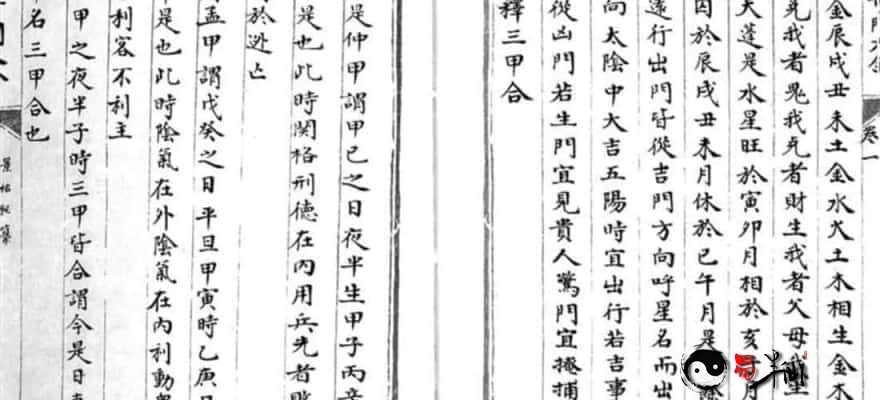 卷一
金辰戌丑未土金水火土木相生金木
克我者鬼我克者財生我者父母我生
天蓬是水星旺於寅卯月相於亥子月
囚於辰戌丑未月休於巳午月是
遂行出門皆從吉門方向呼星名而出
向太陰中大吉五陽時宜出行若吉事
從凶門若生門宜見貴人驚門宜捕
釋三甲合
是仲甲謂甲己之日夜半生甲子丙辛
是也此時関格刑德在内用兵先者敗
於逃亡
孟甲謂戊癸之日平旦甲寅時乙庚日
是也此時陰氣在外陰氣在内利動
利客不利主
甲之夜半子時三甲皆合謂今是日
名三甲合也